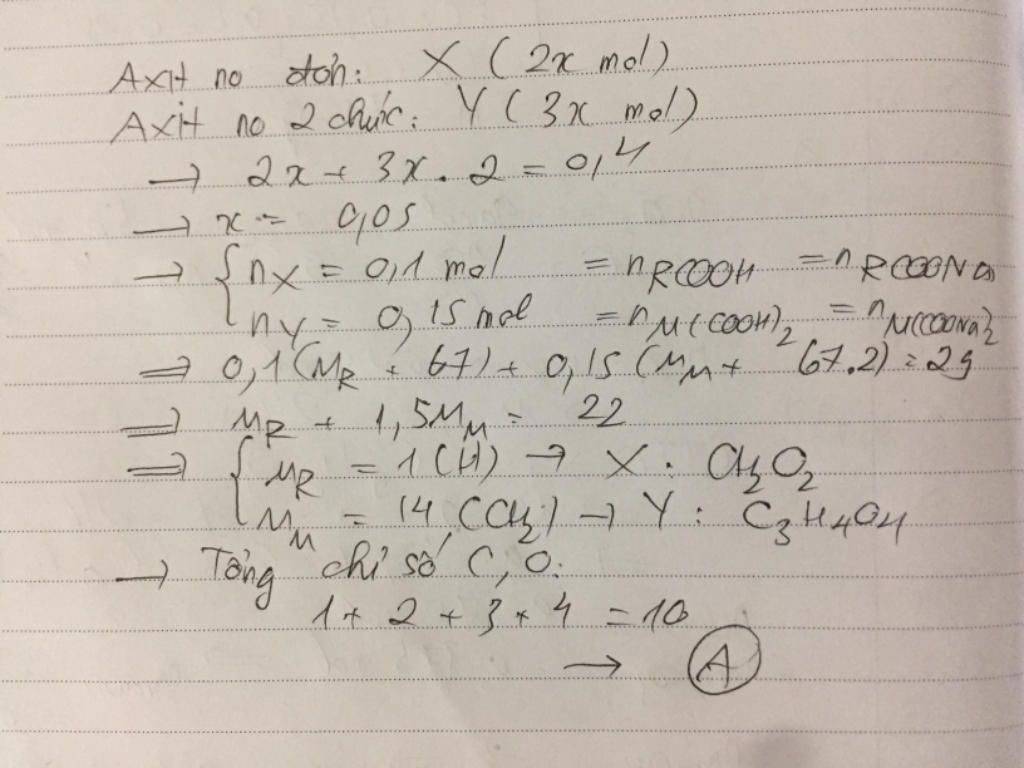 Axit no đơn: X ( 2x mol)
Axit no 2 chức: Y ( 3x mol)
→ 2x + 3x . 2 = 0,4
→ x = 0,05
→ { nX = 0,1 mol = nRCOOH = nRCOONa
nY = 0,15 mol = nM(COOH)2 = nM(COONa)2
⇒ 0,1(MR + 67) + 0,15 (MM + 67.2) = 29
⇒ MR + 1,5MM = 22
⇒ { MR = 1 (H) → X : CH2O2
MM = 14 (CH2) → Y : C3H4O4
→ Tổng chỉ số C, O:
1 + 2 + 3 + 4 = 10
→ A